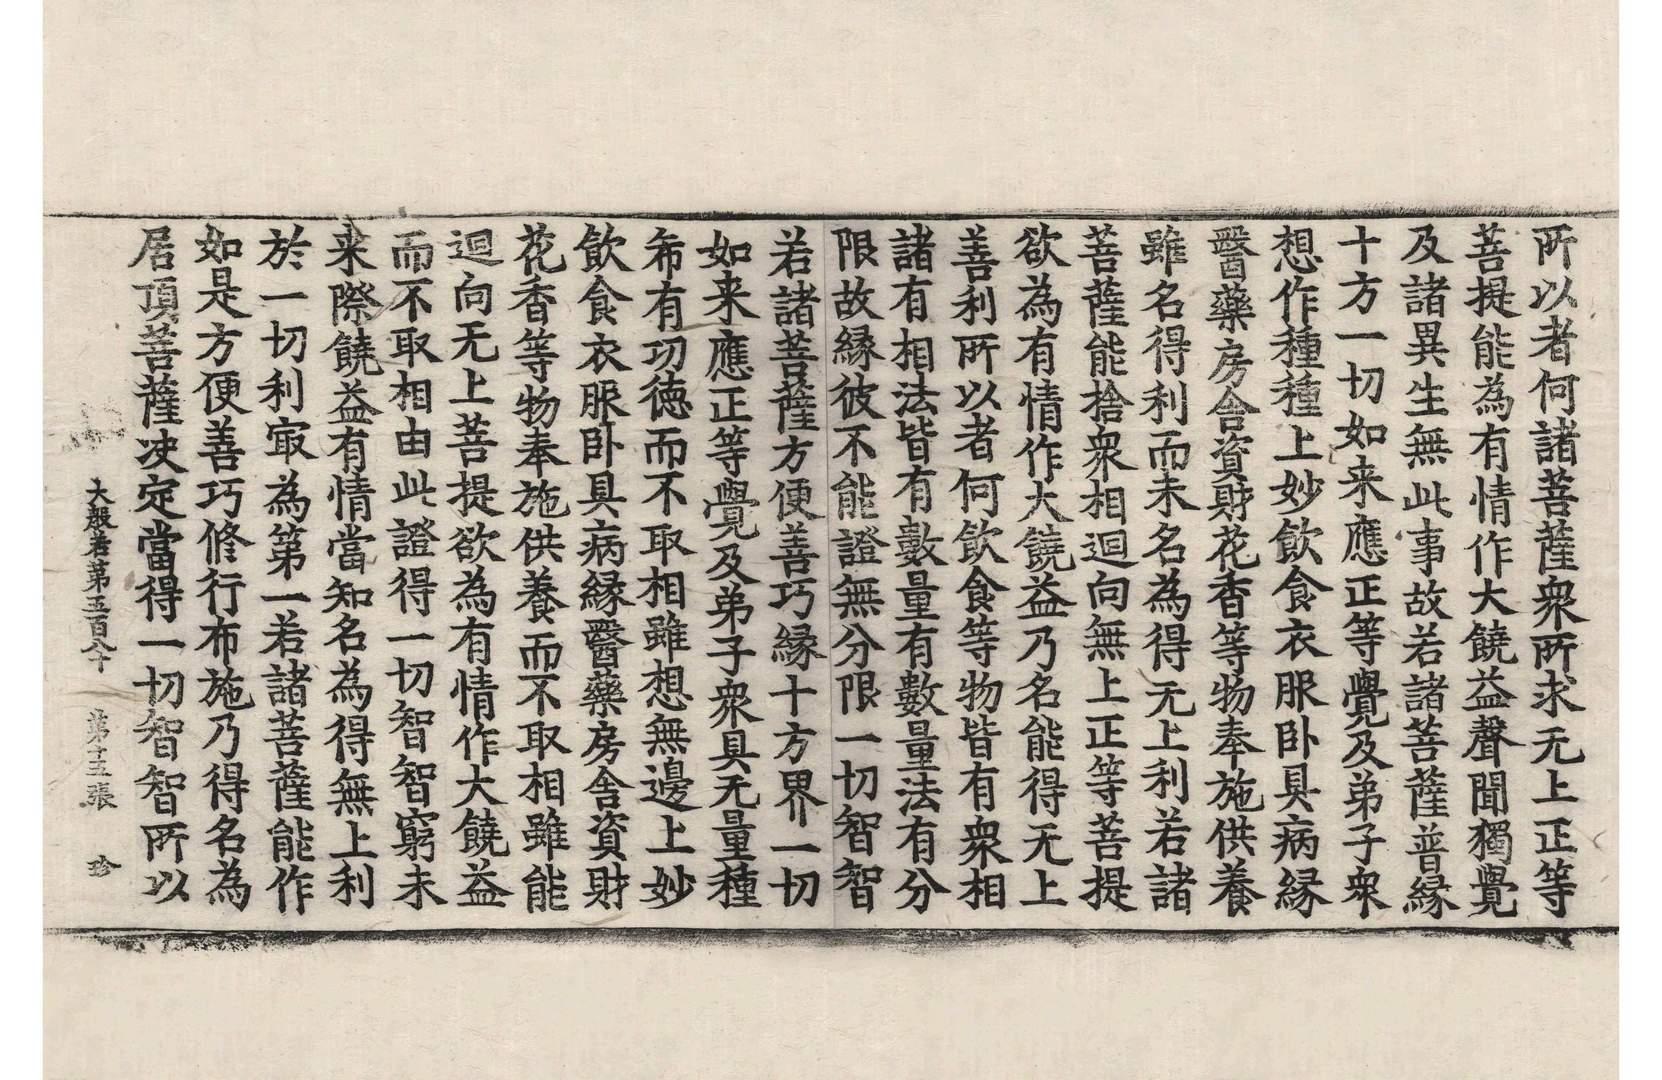 所以者何諸菩薩衆所求无上正等
菩提能為有情作大饒益聲聞獨覺
及諸異生無此事故若諸菩薩普縁
十方一切如来應正等覺及弟子衆
想作種種上妙飲食衣服卧具病縁
醫藥房舎資財花香等物奉施供養
雖名得利而未名為得无上利若諸
菩薩能捨衆相迴向無上正等菩提
欲為有情作大饒益乃名能得无上
善利所以者何飲食等物皆有衆相
諸有相法皆有數量有數量法有分
限故縁彼不能證無分限一切智智
若諸菩薩方便善巧縁十方界一切
如来應正等覺及弟子衆具无量種
希有功德而不取相雖想無邊上妙
飲食衣服卧具病縁醫藥房舎資財
花香等物奉施供養而不取相雖能
迴向无上菩提欲為有情作大饒益
而不取相由此證得一切智智窮未
来際饒益有情當知名為得無上利
於一切利㝡為第一若諸菩薩能作
如是方便善巧修行布施乃得名為
居頂菩薩决定當得一切智智所以
大般若第五百八十 第十五張 珍